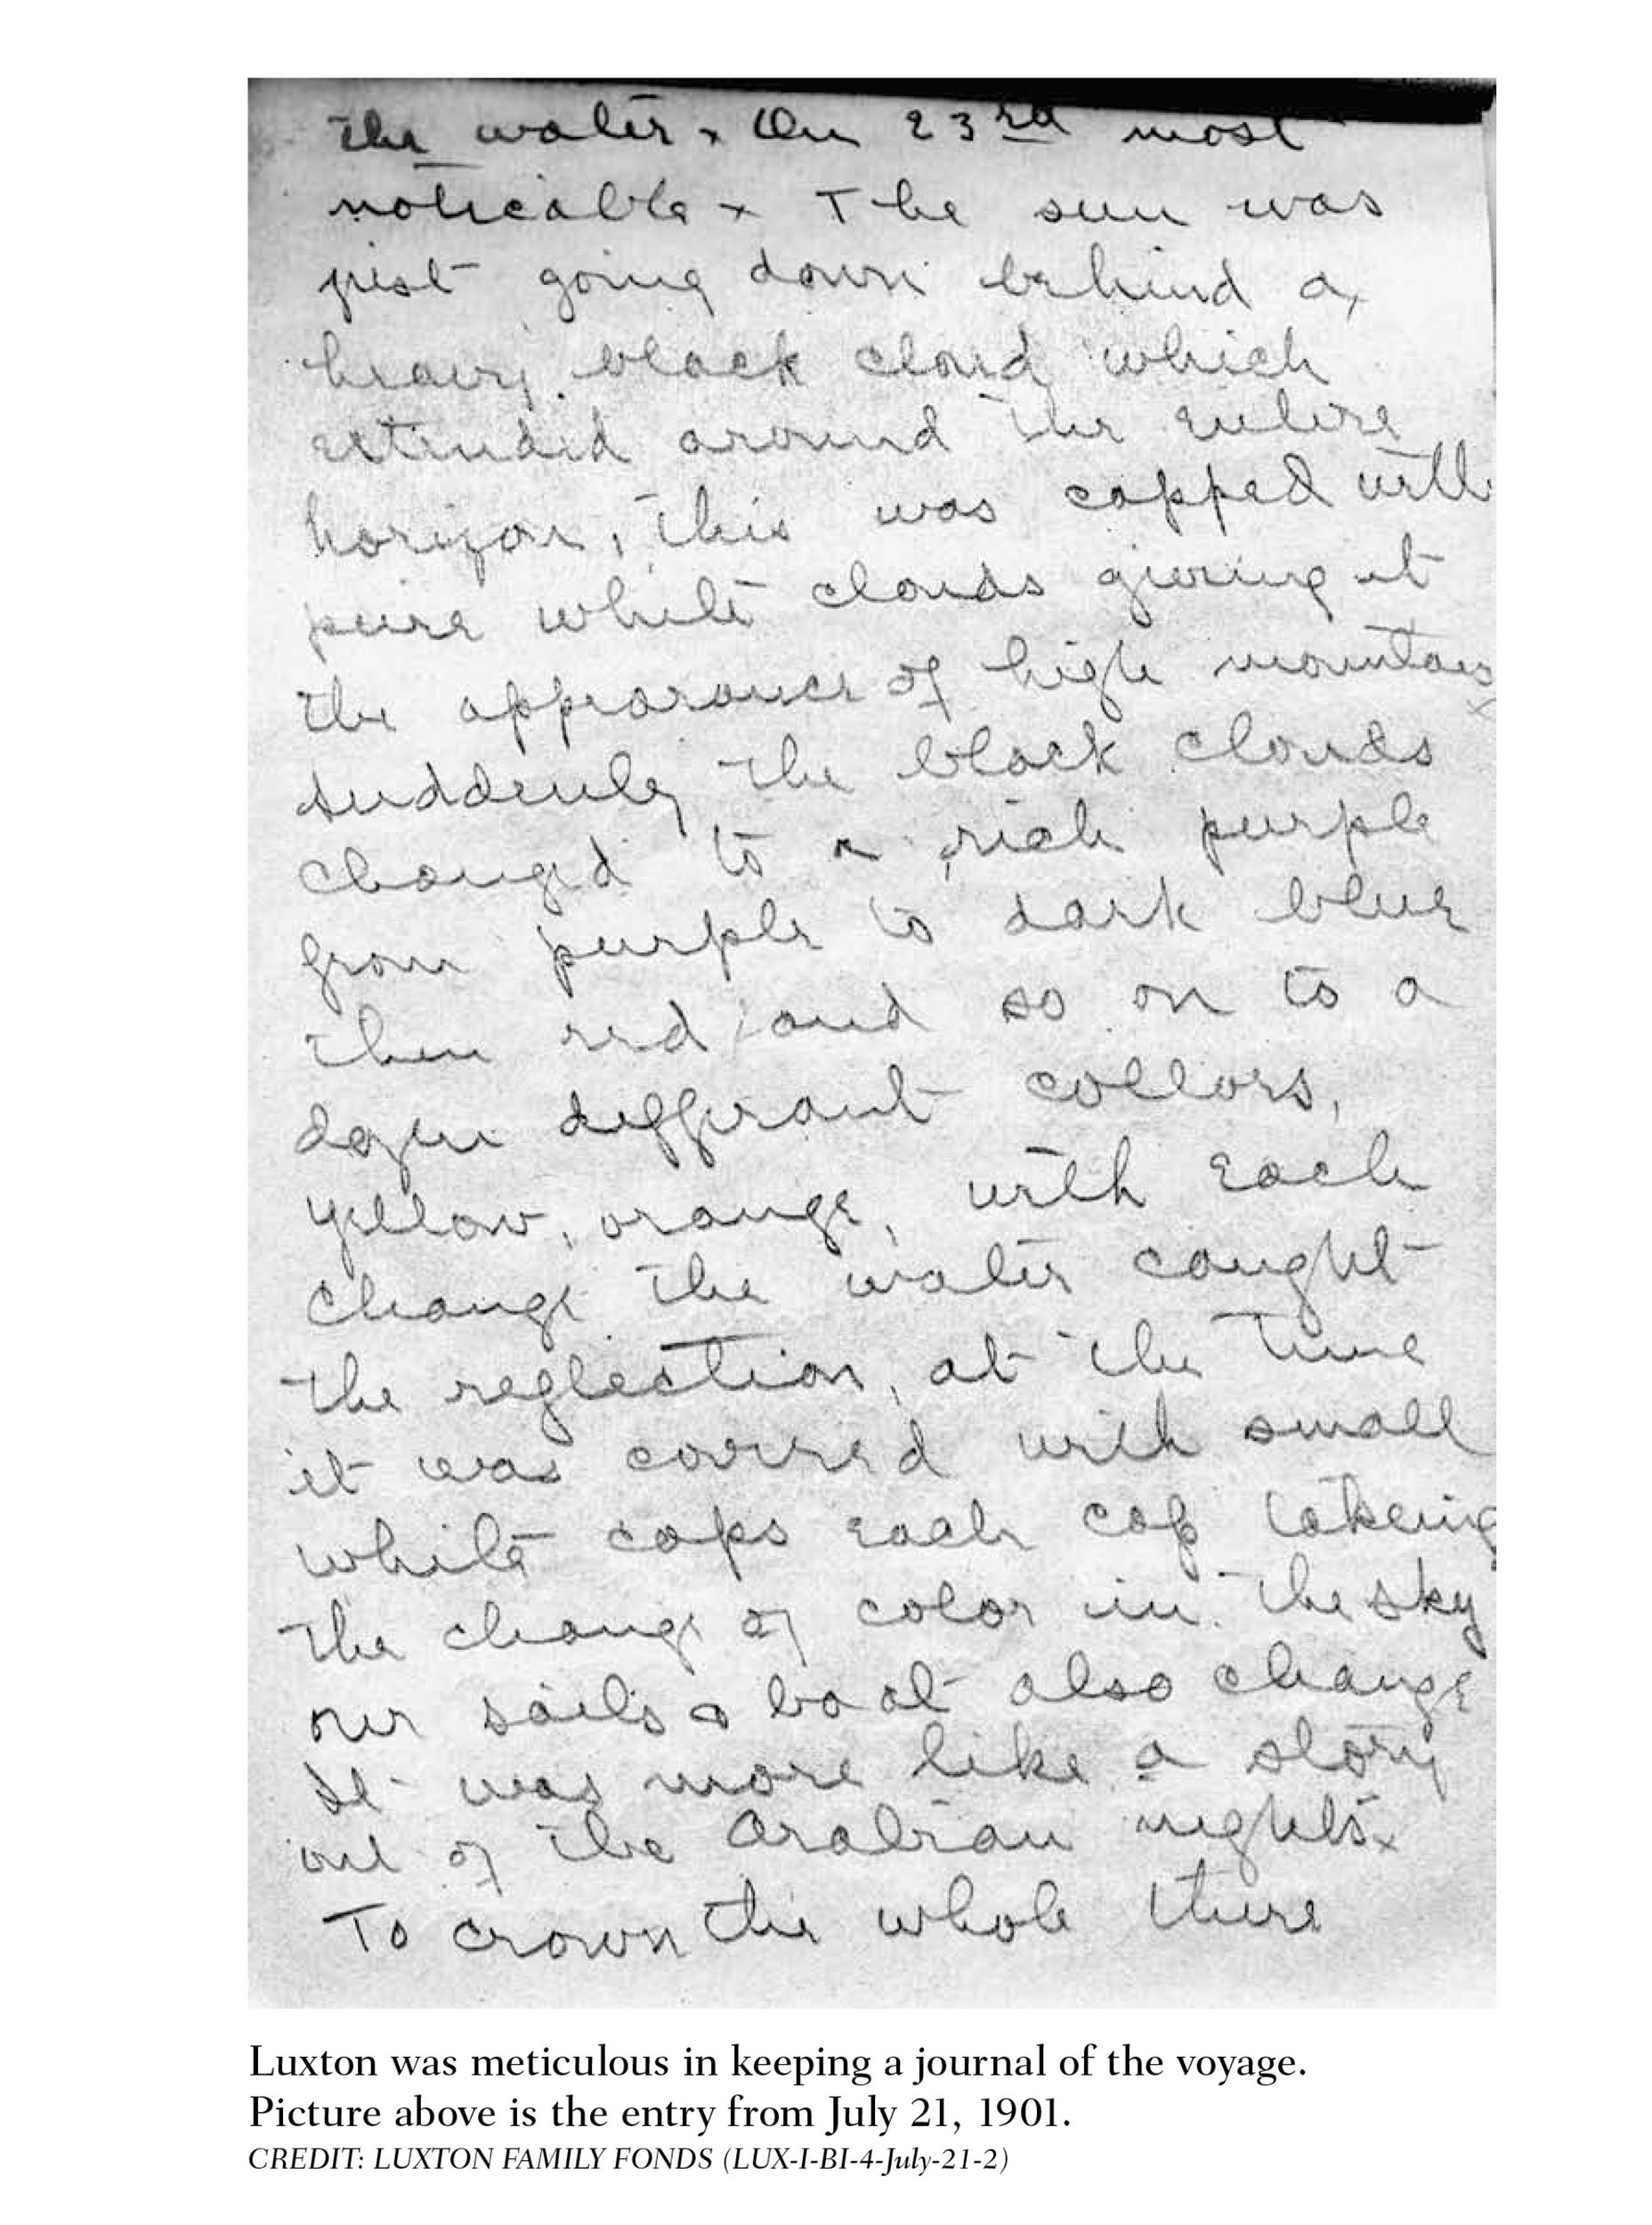 the water x On 23rd most
noticable x The sun was
just going down behind a
heavy black cloud which
extended around the entire
horizon, this was capped with
pure white clouds giveing it
the appearance of high mountains x
suddenly the black clouds
changed to a rich purple
from purple to dark blue
then red and so on to a
dozen differant collors,
yellow, orange, with each
change the water caught
the reflection, at the time
it was covered with small
white caps each cap takeing
the change of color in the sky
our sails & boat also change
It was more like a story
out of the Arabian nights x
To crown the whole there
Luxton was meticulous in keeping a journal of the voyage.
Picture above is the entry from July 21, 1901.
CREDIT: LUXTON FAMILY FONDS (LUX-I-BI-4-July-21-2)